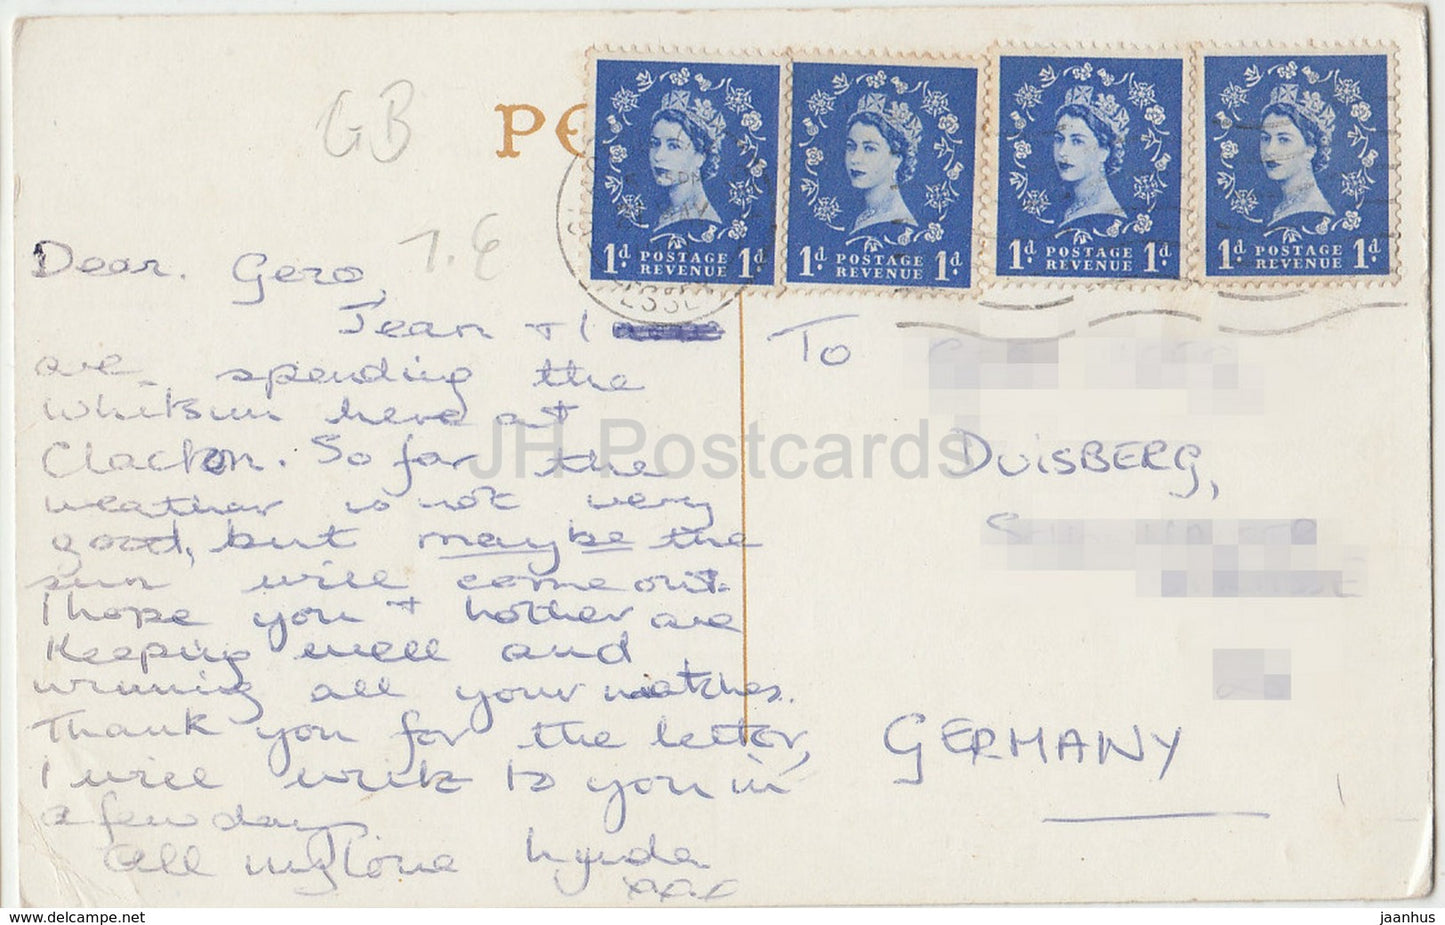 GB
PO
1.6
1d POSTAGE REVENUE 1d
1d POSTAGE REVENUE 1d
1d POSTAGE REVENUE 1d
1d POSTAGE REVENUE 1d
Dear. Gero,
Jean + I
are spending the
Whitsun here at
Clacton. So far the
weather is not very
good, but maybe the
sun will come out.
I hope you + Mother are
Keeping well and
winning all your matches.
Thank you for the letter,
I will write to you in
a few days
All my love Lynda
xxxx
To
DUISBERG,
GERMANY
JH Postcards
hip-comix.net
jaanhus